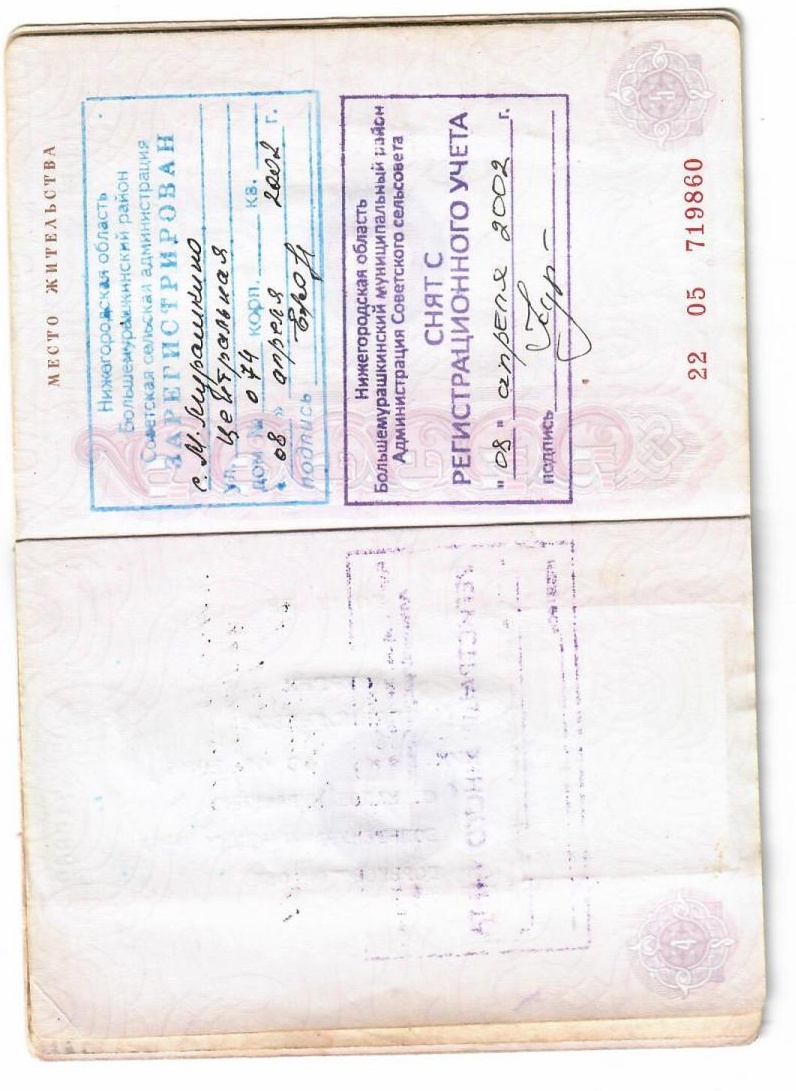 МЕСТО ЖИТЕЛЬСТВА
Нижегородская область
Большемурашкинский район
Советская сельская администрация
ЗАРЕГИСТРИРОВАН
с. М. Мурашкино
ул. Центральная
дом № 074 корп. кв.
"08" апреля 2002 г.
подпись
Нижегородская область
Большемурашкинский муниципальный район
Администрация Советского сельсовета
СНЯТ С
РЕГИСТРАЦИОННОГО УЧЕТА
"08" апреля 2002 г.
подпись
5
22 05 719860
4